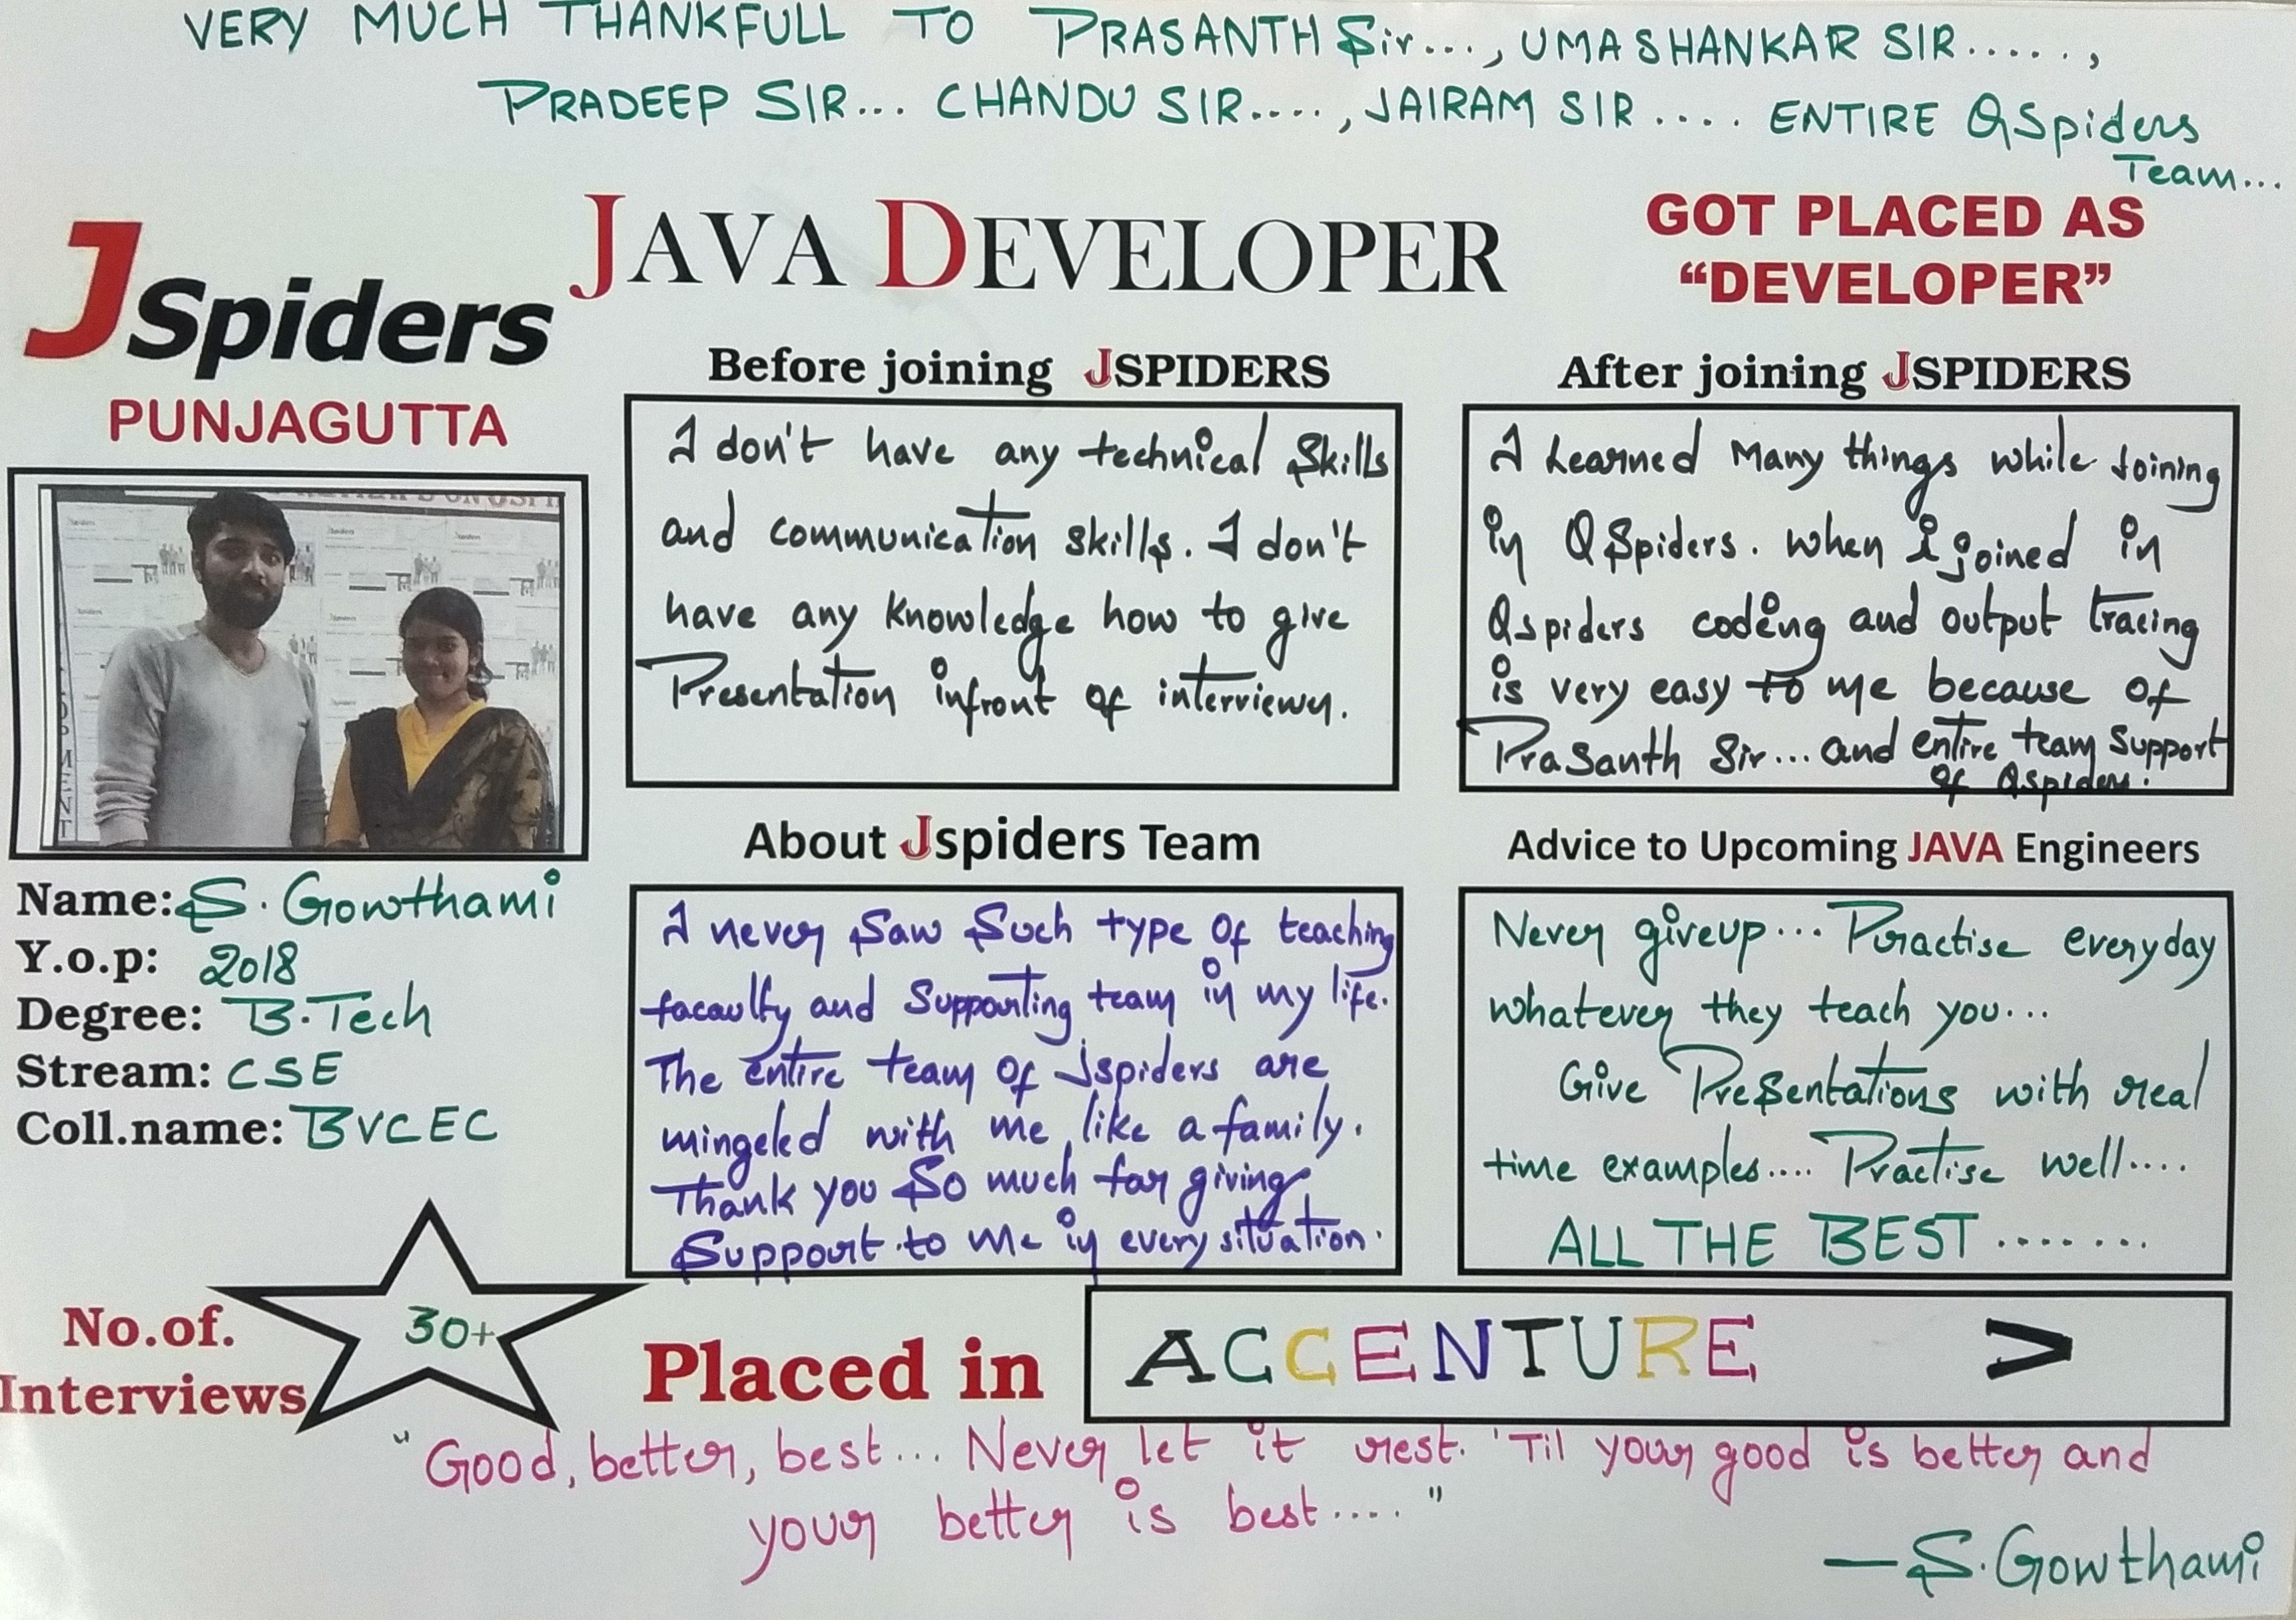 VERY MUCH THANKFULL TO PRASANTH Sir..., UMASHANKAR SIR.....,
PRADEEP SIR... CHANDU SIR...., JAIRAM SIR .... ENTIRE QSpiders
Team...
JAVA DEVELOPER
GOT PLACED AS
“DEVELOPER”
JSpiders
PUNJAGUTTA
Before joining JSPIDERS
I don't have any technical Skills
and communication skills. I don't
have any knowledge how to give
Presentation infront of interviewer.
After joining JSPIDERS
I Learned Many things while Joining
in QSpiders. when I joined in
Qspiders coding and output tracing
is very easy to me because of
PraSanth Sir... and entire team Support
of Qspiders.
Name: S. Gowthami
Y.o.p: 2018
Degree: B.Tech
Stream: CSE
Coll.name: BVCEC
About Jspiders Team
I never Saw Such type of teaching
facaulty and Supporting team in my life.
The entire team of Jspiders are
mingeled with me like a family.
Thank you So much for giving
Support to me in every situation.
Advice to Upcoming JAVA Engineers
Never giveup... Practise everyday
whatever they teach you...
Give PreSentations with real
time examples.... Practise well....
ALL THE BEST ........
No.of.
Interviews
30+
Placed in
ACCENTURE >
"Good, better, best... Never let it rest. 'Til your good is better and
your better is best...."
— S. Gowthami